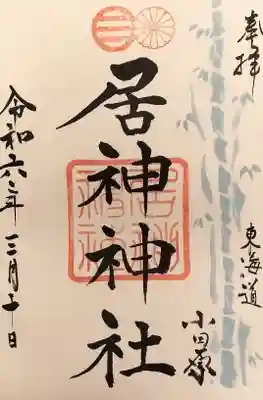 奉拝
東海道
小田原
居神神社
令和六年三月十日